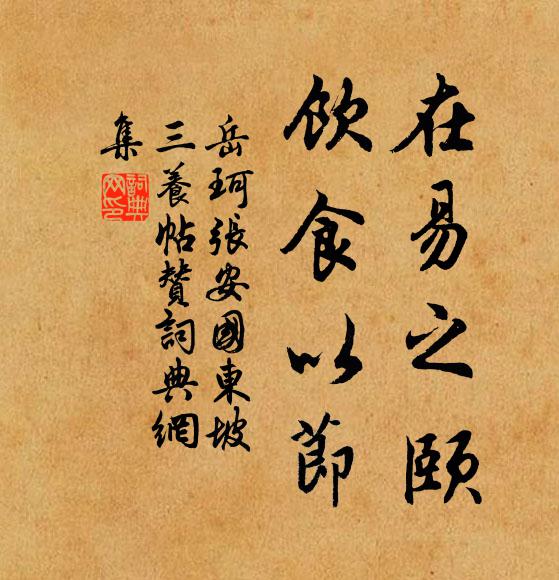 在易之頤
飲食以節
岳珂張安國東坡
三養帖贊詞典網
集
詞典網印